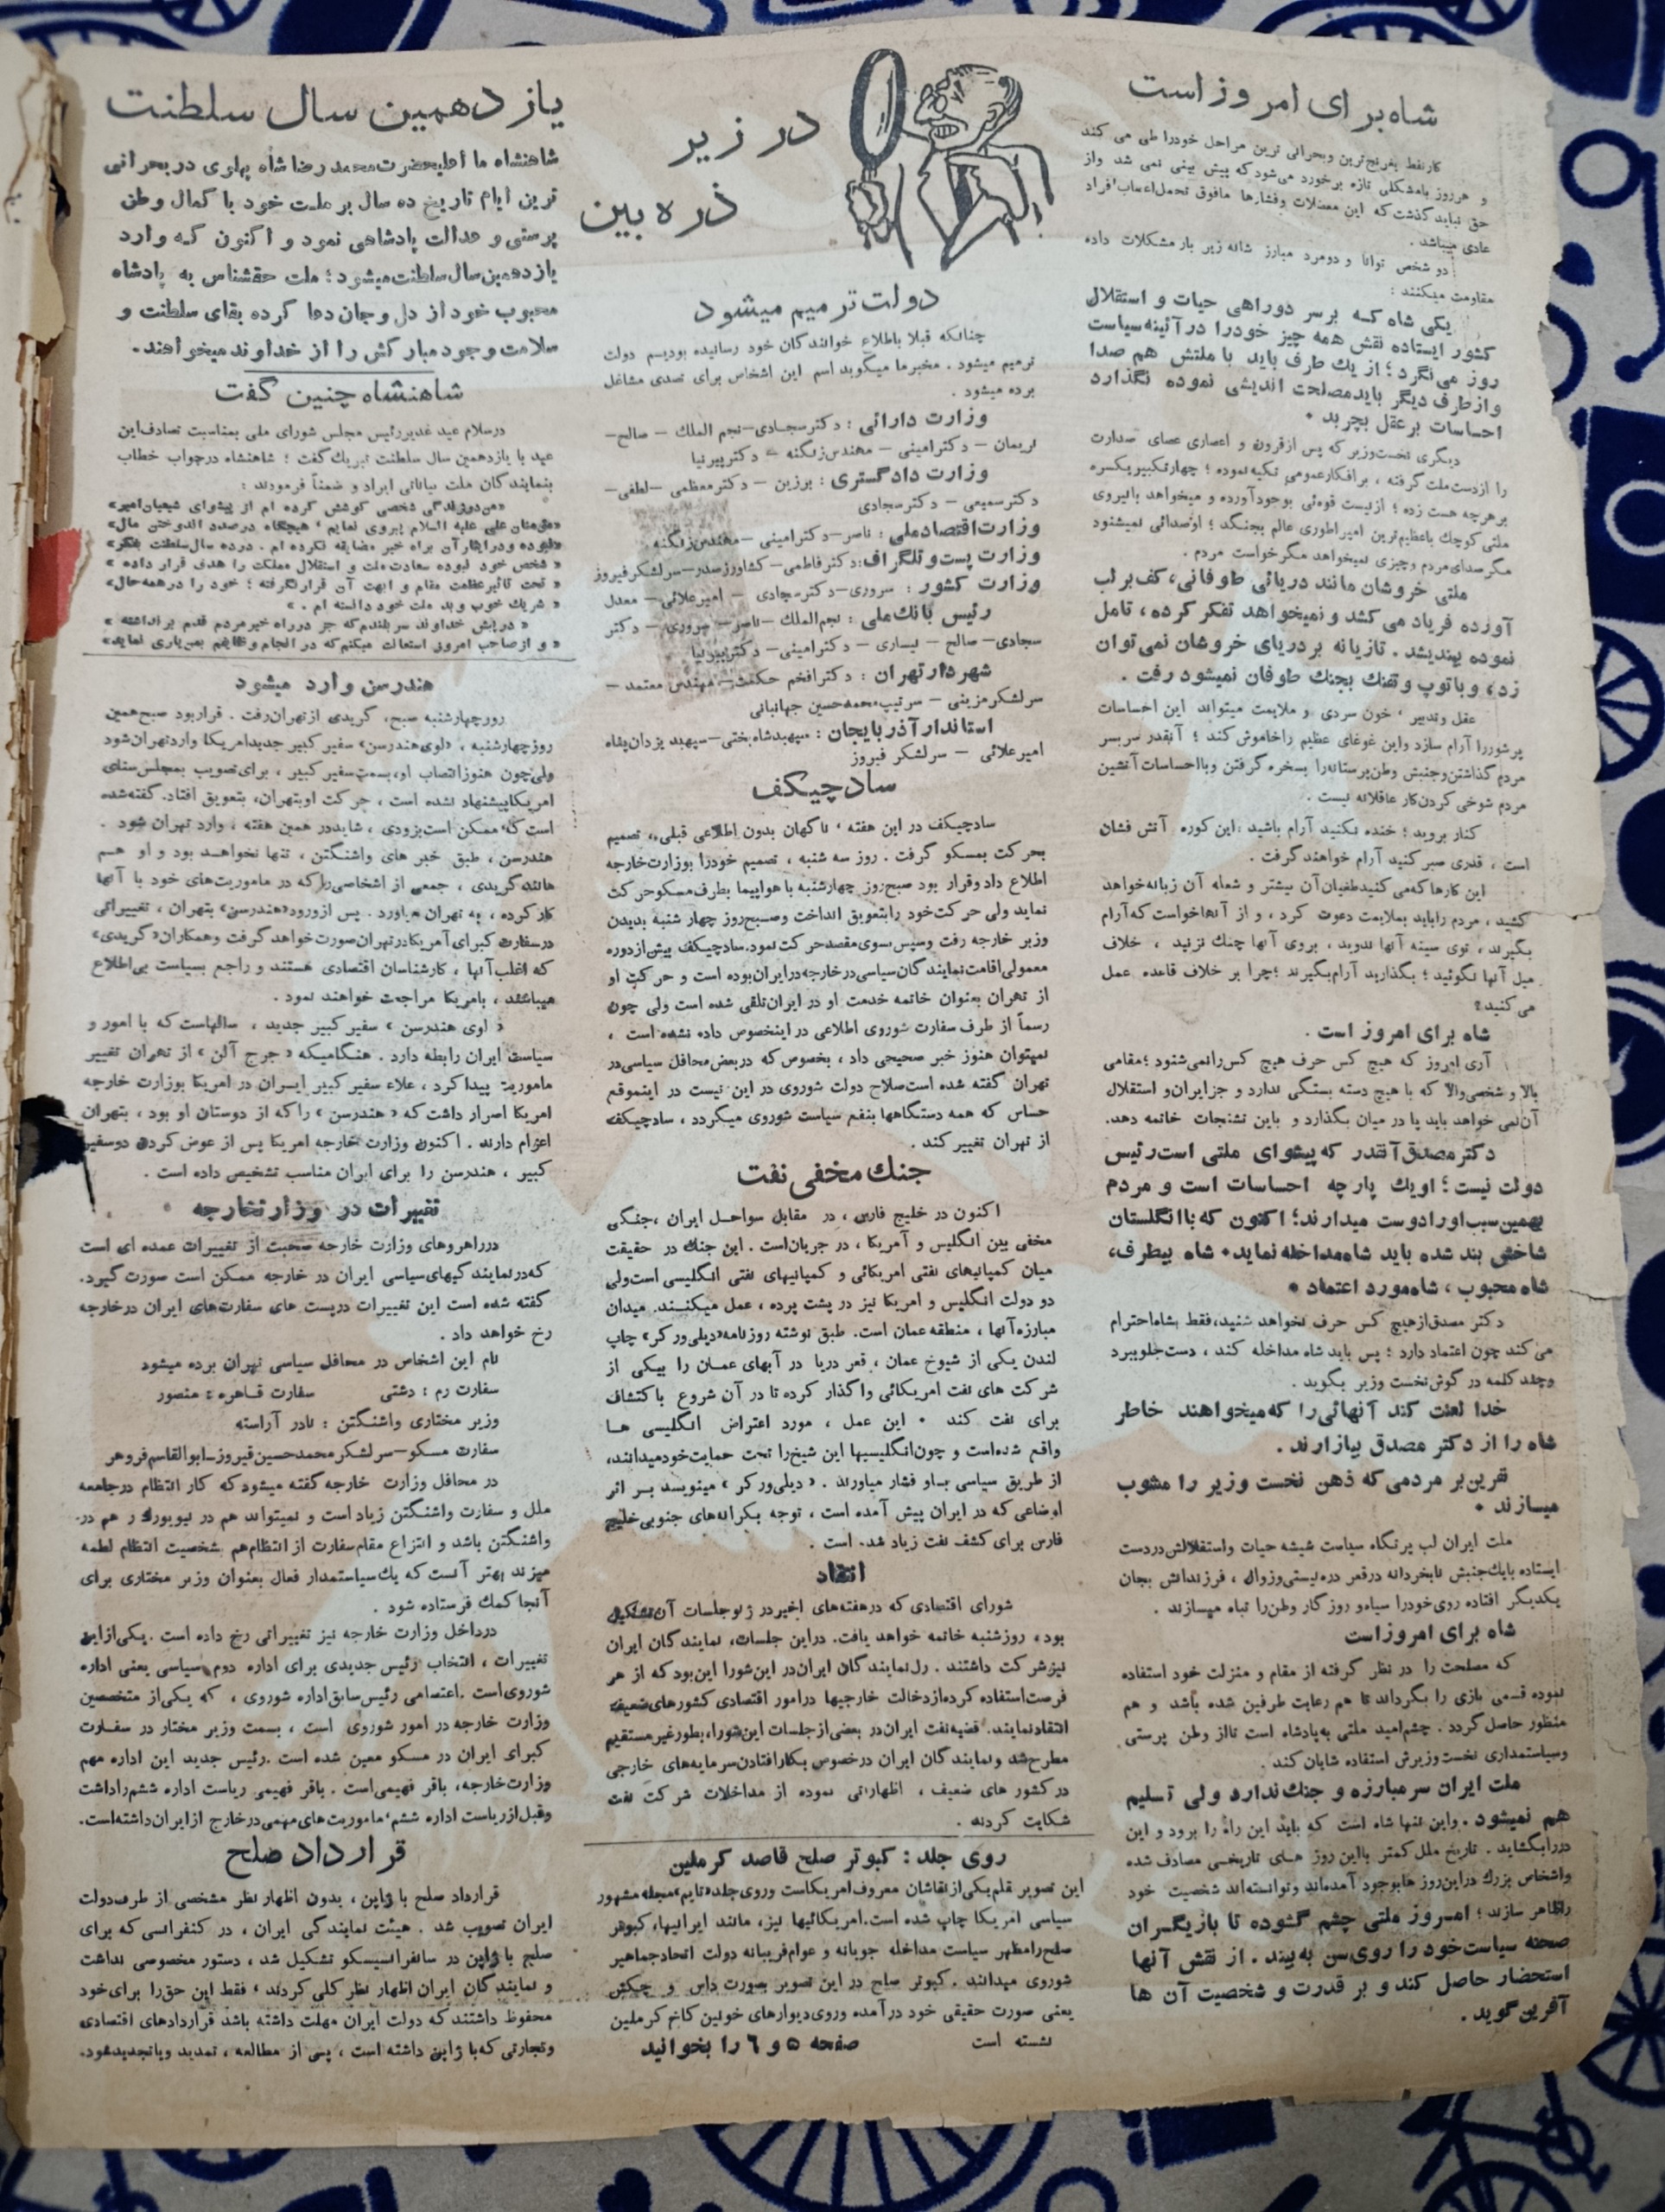 شاه برای امروز است
کار نفط بغرنج‌ترین و بحرانی ترین مراحل خود را طی می کند
و هر روز بامشکلی تازه برخورد می‌شود که پیش بینی نمی شد واز
حق نباید گذشت که این معضلات وفشارها مافوق تحمل اعصاب افراد
عادی میباشد .
دو شخص توانا و دومرد مبارز شانه زیر بار مشکلات داده
مقاومت میکنند :
یکی شاه که بر سر دوراهی حیات و استقلال
کشور ایستاده نقش همه چیز خودرا در آئینه سیاست
روز می نگرد ؛ از یك طرف باید با ملتش هم صدا
و از طرف دیگر باید مصلحت اندیشی نموده نگذارد
احساسات بر عقل بچربد .
دیگری نخست‌وزیر که پس ازقرون و اعصاری عصای صدارت
را ازدست ملت گرفته ، برافکار عمومی تکیه نموده ؛ چهار تکبیر یکسره
بر هرچه هست زده ؛ از لیست قوه‌ئی بوجود آورده و میخواهد بانیروی
ملتی کوچك باعظیم‌ترین امپراطوری عالم بجنگد ؛ او صدائی نمیشنود
مگر صدای مردم و چیزی نمیخواهد مگر خواست مردم .
ملتی خروشان مانند دریائی طوفانی ، کف بر لب
آورده فریاد می کشد و نمیخواهد تفکر کرده ، تامل
نموده بیندیشد . تازیانه بر دریای خروشان نمی توان
زد ، و با توپ و تفنك بجنك طوفان نمیشود رفت .
عقل وتدبیر ، خون سردی و ملایمت میتواند این احساسات
پرشور را آرام سازد واین غوغای عظیم را خاموش کند ؛ آنقدر سربسر
مردم گذاشتن وجنبش وطن‌پرستانه را بسخره گرفتن وبا احساسات آتشین
مردم شوخی کردن کار عاقلانه نیست .
کنار بروید ؛ خنده نکنید آرام باشید ؛ این کوره آتش فشان
است ، قدری صبر کنید آرام خواهند گرفت .
این کارها که می کنید طغیان آن بیشتر و شعله آن زبانه خواهد
کشید ، مردم را باید بملایمت دعوت کرد ، و از آنها خواست که آرام
بگیرند ، توی سینه آنها ندوید ، بروی آنها چنك نزنید ، خلاف
میل آنها نگوئید ؛ بگذارید آرام بگیرند ؛ چرا بر خلاف قاعده عمل
می کنید ؟
شاه برای امروز است .
آری امروز که هیچ کس حرف هیچ کس رانمی‌شنود ؛ مقامی
بالا و شخصی والا که با هیچ دسته بستگی ندارد و جز ایران و استقلال
آن نمی خواهد باید پا در میان بگذارد و باین تشنجات خاتمه دهد.
دکتر مصدق آنقدر که پیشوای ملتی است رئیس
دولت نیست ؛ او یك پارچه احساسات است و مردم
بهمین سبب او را دوست میدارند؛ اکنون که با انگلستان
شاخش بند شده باید شاه مداخله نماید . شاه بیطرف ،
شاه محبوب ، شاه مورد اعتماد .
دکتر مصدق از هیچ کس حرف نخواهد شنید، فقط بشاه احترام
می کند چون اعتماد دارد ؛ پس باید شاه مداخله کند ، دست جلو ببرد
وچند کلمه در گوش نخست وزیر بگوید .
خدا لعنت کند آنهائی را که میخواهند خاطر
شاه را از دکتر مصدق بیازارند .
نفرین بر مردمی که ذهن نخست وزیر را مشوب
میسازند .
ملت ایران لب پرتگاه سیاست شیشه حیات واستقلالش در دست
ایستاده بایك جنبش نابخردانه در قعر دره نیستی وزوال ، فرزندانش بجان
یکدیگر افتاده روی خود را سیاه و روز گار وطن را تباه میسازند .
شاه برای امروز است
که مصلحت را در نظر گرفته از مقام و منزلت خود استفاده
نموده قسمی بازی را بگرداند تا هم رعایت طرفین شده باشد و هم
منظور حاصل گردد . چشم امید ملتی به پادشاه است تا از وطن پرستی
وسیاستمداری نخست وزیرش استفاده شایان کند .
ملت ایران سر مبارزه و جنك ندارد ولی تسلیم
هم نمیشود . واین تنها شاه است که باید این راه را برود و این
در را بگشاید . تاریخ ملل کمتر باین روز های تاریخی مصادف شده
واشخاص بزرك دراین روز ها بوجود آمده‌اند و توانسته‌اند شخصیت خود
را ظاهر سازند ؛ امروز ملتی چشم گشوده تا بازیگران
صحنه سیاست خود را روی سن به بیند . از نقش آنها
استحضار حاصل کند و بر قدرت و شخصیت آن ها
آفرین گوید .
در زیر
ذره بین
دولت ترمیم میشود
چنانکه قبلا باطلاع خوانندگان خود رسانیده بودیم دولت
ترمیم میشود . مخبر ما میگوید اسم این اشخاص برای تصدی مشاغل
برده میشود .
وزارت دارائی : دکتر سجادی - نجم الملك - صالح -
نریمان - دکتر امینی - مهندس زنگنه - دکتر پیرنیا
وزارت دادگستری : برزین - دکتر معظمی - لطفی -
دکتر سمیعی - دکتر سجادی
وزارت اقتصاد ملی : ناصر - دکتر امینی - مهندس زنگنه
وزارت پست و تلگراف : دکتر فاطمی - کشاورز صدر - سرلشکر فیروز
وزارت کشور : سروری - دکتر سجادی - امیر علائی - معدل
رئیس بانك ملی : نجم الملك - ناصر - سروری - دکتر
سجادی - صالح - یساری - دکتر امینی - دکتر پیرنیا
شهردار تهران : دکتر افخم حکمت - مهندس معتمد -
سرلشکر مزینی - سرتیپ محمد حسین جهانبانی
استاندار آذربایجان : سپهبد شاه بختی - سپهبد یزدان پناه
امیر علائی - سرلشکر فیروز
سادچیکف
سادچیکف در این هفته ، ناگهان بدون اطلاعی قبلی ، تصمیم
بحرکت بمسکو گرفت . روز سه شنبه ، تصمیم خود را بوزارت خارجه
اطلاع داد و قرار بود صبح روز چهارشنبه با هواپیما بطرف مسکو حرکت
نماید ولی حرکت خود را بتعویق انداخت وصبح روز چهار شنبه بدیدن
وزیر خارجه رفت وسپس بسوی مقصد حرکت نمود. سادچیکف بیش از دوره
معمولی اقامت نمایندگان سیاسی در خارجه در ایران بوده است و حرکت او
از تهران بعنوان خاتمه خدمت او در ایران تلقی شده است ولی چون
رسماً از طرف سفارت شوروی اطلاعی در اینخصوص داده نشده است ،
نمیتوان هنوز خبر صحیحی داد ، بخصوص که در بعض محافل سیاسی در
تهران گفته شده است صلاح دولت شوروی در این نیست در اینموقع
حساس که همه دستگاهها بنفع سیاست شوروی میگردد ، سادچیکف
از تهران تغییر کند .
جنك مخفی نفت
اکنون در خلیج فارس ، در مقابل سواحل ایران ، جنگی
مخفی بین انگلیس و آمریکا ، در جریان است . این جنك در حقیقت
میان کمپانیهای نفتی امریکائی و کمپانیهای نفتی انگلیسی است ولی
دو دولت انگلیس و امریکا نیز در پشت پرده ، عمل میکنند. میدان
مبارزه آنها ، منطقه عمان است. طبق نوشته روزنامه «دیلی ورکر» چاپ
لندن یکی از شیوخ عمان ، قعر دریا در آبهای عمان را بیکی از
شرکت های نفت امریکائی واگذار کرده تا در آن شروع باکتشاف
برای نفت کند . این عمل ، مورد اعتراض انگلیسی ها
واقع شده است و چون انگلیسیها این شیخ را تحت حمایت خود میدانند ،
از طریق سیاسی باو فشار میاورند . « دیلی ورکر » مینویسد بر اثر
اوضاعی که در ایران پیش آمده است ، توجه بکرانه‌های جنوبی خلیج
فارس برای کشف نفت زیاد شده است .
انتقاد
شورای اقتصادی که در هفته‌های اخیر در ژنو جلسات آن تشکیل
بود ، روز شنبه خاتمه خواهد یافت. در این جلسات، نمایندگان ایران
نیز شرکت داشتند . رل نمایندگان ایران در این شورا این بود که از هر
فرصت استفاده کرده از دخالت خارجیها در امور اقتصادی کشورهای ضعیف
انتقاد نمایند. قضیه نفت ایران در بعضی از جلسات این شورا ، بطور غیر مستقیم
مطرح شد و نمایندگان ایران در خصوص بکار افتادن سرمایه‌های خارجی
در کشور های ضعیف ، اظهاراتی نموده از مداخلات شرکت نفت
شکایت کردند .
روی جلد : کبوتر صلح قاصد کرملین
این تصویر قلم یکی از نقاشان معروف امریکاست وروی جلد «تایم» مجله مشهور
سیاسی امریکا چاپ شده است. امریکائیها نیز، مانند ایرانیها، کبوتر
صلح را مظهر سیاست مداخله جویانه و عوام فریبانه دولت اتحاد جماهیر
شوروی میدانند . کبوتر صلح در این تصویر بصورت داس و چکش
یعنی صورت حقیقی خود در آمده وروی دیوارهای خونین کاخ کرملین
نشسته است
صفحه ٥ و ٦ را بخوانید
یازدهمین سال سلطنت
شاهنشاه ما اعلیحضرت محمد رضا شاه پهلوی در بحرانی
ترین ایام تاریخ ده سال بر ملت خود با کمال وطن
پرستی و عدالت پادشاهی نمود و اکنون که وارد
یازدهمین سال سلطنت میشود ؛ ملت حقشناس به پادشاه
محبوب خود از دل و جان دعا کرده بقای سلطنت و
سلامت وجود مبارکش را از خداوند میخواهند .
شاهنشاه چنین گفت
در سلام عید غدیر رئیس مجلس شورای ملی بمناسبت تصادف این
عید با یازدهمین سال سلطنت تبریك گفت ؛ شاهنشاه در جواب خطاب
بنمایندگان ملت بیاناتی ایراد و ضمناً فرمودند :
«من در زندگی شخصی کوشش کرده ام از پیشوای شیعیان امیر»
«مؤمنان علی علیه السلام پیروی نمایم ، هیچگاه در صدد اندوختن مال»
«نبوده و در ایثار آن براه خیر مضایقه نکرده ام . در ده سال سلطنت بفکر»
« شخص خود نبوده سعادت ملت و استقلال مملکت را هدف قرار داده »
« تحت تاثیر عظمت مقام و ابهت آن قرار نگرفته ؛ خود را در همه حال»
« شریك خوب و بد ملت خود دانسته ام . »
« در پیش خداوند سر بلندم که جز در راه خیر مردم قدم برنداشته »
« و از صاحب امروز استعانت میکنم که در انجام وظایفم بمن یاری نماید»
هندرسن وارد میشود
روز چهارشنبه صبح، گریدی از تهران رفت . قرار بود صبح همین
روز چهارشنبه ، «لوی هندرسن» سفیر کبیر جدید امریکا وارد تهران شود
ولی چون هنوز انتصاب او ، بسمت سفیر کبیر ، برای تصویب بمجلس سنای
امریکا پیشنهاد نشده است ، حرکت او بتهران ، بتعویق افتاد. گفته شده
است که ممکن است بزودی ، شاید در همین هفته ، وارد تهران شود .
هندرسن ، طبق خبر های واشنگتن ، تنها نخواهد بود و او هم
مانند گریدی ، جمعی از اشخاصی را که در ماموریت‌های خود با آنها
کار کرده ، به تهران میاورد . پس از ورود «هندرسن» بتهران ، تغییراتی
در سفارت کبرای آمریکا در تهران صورت خواهد گرفت و همکاران «گریدی»
که اغلب آنها ، کارشناسان اقتصادی هستند و راجع بسیاست بی اطلاع
میباشند ، بامریکا مراجعت خواهند نمود .
« لوی هندرسن » سفیر کبیر جدید ، سالهاست که با امور و
سیاست ایران رابطه دارد . هنگامیکه « جرج آلن » از تهران تغییر
ماموریت پیدا کرد ، علاء سفیر کبیر ایران در امریکا بوزارت خارجه
امریکا اصرار داشت که « هندرسن » را که از دوستان او بود ، بتهران
اعزام دارند . اکنون وزارت خارجه امریکا پس از عوض کردن دو سفیر
کبیر ، هندرسن را برای ایران مناسب تشخیص داده است .
تغییرات در وزارتخارجه
در راهروهای وزارت خارجه صحبت از تغییرات عمده ای است
که در نمایندگیهای سیاسی ایران در خارجه ممکن است صورت گیرد.
گفته شده است این تغییرات در پست های سفارت‌های ایران در خارجه
رخ خواهد داد .
نام این اشخاص در محافل سیاسی تهران برده میشود
سفارت رم : دشتی سفارت قاهره : منصور
وزیر مختاری واشنگتن : نادر آراسته
سفارت مسکو - سرلشکر محمد حسین فیروز - ابوالقاسم فروهر
در محافل وزارت خارجه گفته میشود که کار انتظام در جامعه
ملل و سفارت واشنگتن زیاد است و نمیتواند هم در نیویورك و هم در
واشنگتن باشد و انتزاع مقام سفارت از انتظام هم شخصیت انتظام لطمه
میزند بهتر آنست که یك سیاستمدار فعال بعنوان وزیر مختاری برای
آنجا کمك فرستاده شود .
در داخل وزارت خارجه نیز تغییراتی رخ داده است . یکی از این
تغییرات ، انتخاب رئیس جدیدی برای اداره دوم سیاسی یعنی اداره
شوروی است . اعتصامی رئیس سابق اداره شوروی ، که یکی از متخصصین
وزارت خارجه در امور شوروی است ، بسمت وزیر مختار در سفارت
کبرای ایران در مسکو معین شده است . رئیس جدید این اداره مهم
وزارت خارجه ، باقر فهیمی است . باقر فهیمی ریاست اداره ششم را داشت
وقبل از ریاست اداره ششم ، ماموریت های مهمی در خارج از ایران داشته است.
قرارداد صلح
قرارداد صلح با ژاپن ، بدون اظهار نظر مشخصی از طرف دولت
ایران تصویب شد . هیئت نمایندگی ایران ، در کنفرانسی که برای
صلح با ژاپن در سانفرانسیسکو تشکیل شد ، دستور مخصوصی نداشت
و نمایندگان ایران اظهار نظر کلی کردند ، فقط این حق را برای خود
محفوظ داشتند که دولت ایران مهلت داشته باشد قراردادهای اقتصادی
و تجارتی که با ژاپن داشته است ، پس از مطالعه ، تمدید ویا تجدید شود.